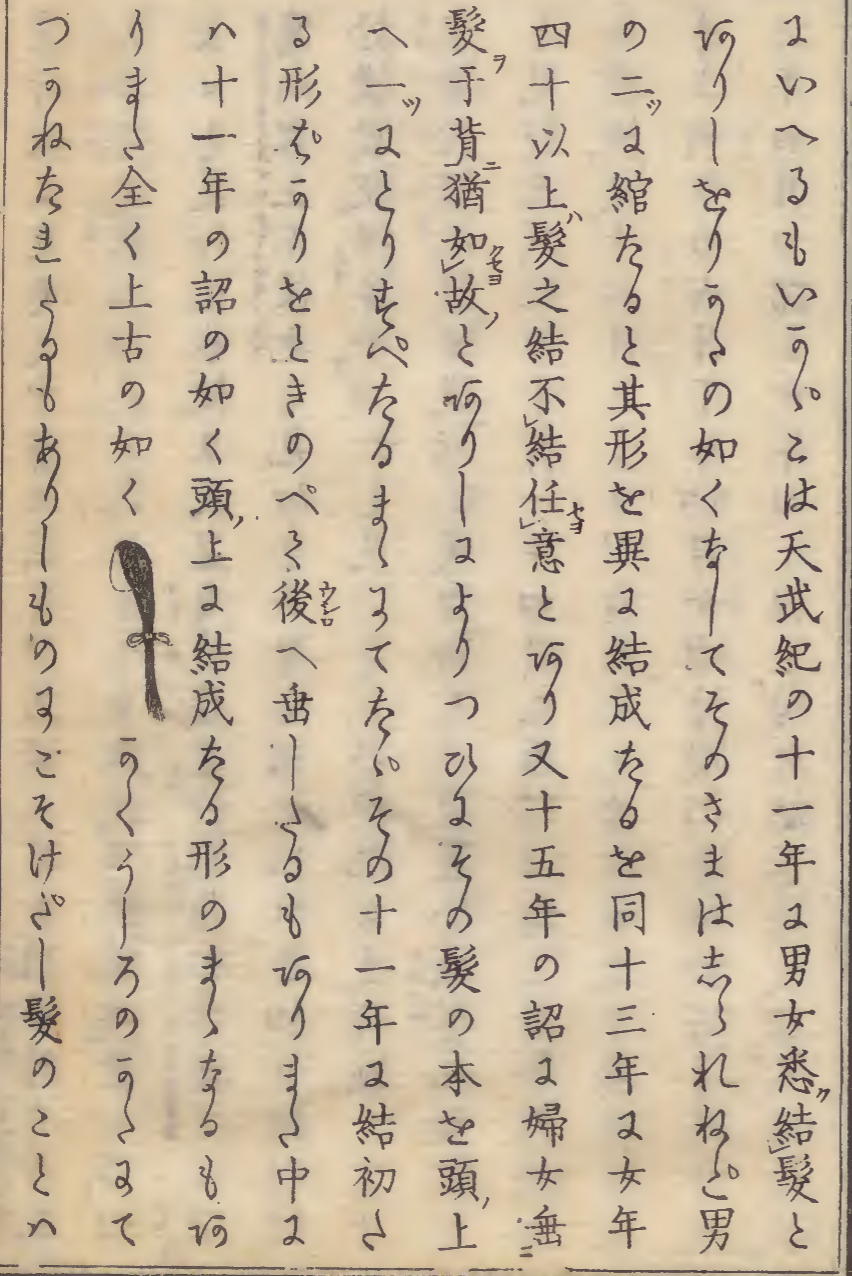 にいへるもいかゞこは天武紀の十一年に男女悉ク結レ髮と
ありしをりかたの如くなしてそのさまは志られねど男
の二ツに綰たると其形を異に結成たるを同十三年に女年
四十以上ハ髮之結不レ結任レ意セヨとあり又十五年の詔に婦女垂ニ
髮ヲ于背ニ猶如レ故ノクセヨとありしによりつひにその髮の本を頭ノ上
へ一ツにとりすべたるまゝにてたゞその十一年に結初た
る形ばかりをときのべて後ウシロへ垂したるもありまた中に
ハ十一年の詔の如く頭ノ上に結成たる形のまゝなるもあ
りまた全く上古の如くかくうしろのかたにて
つかねたれたるもありしものにこそけだし髮のことハ